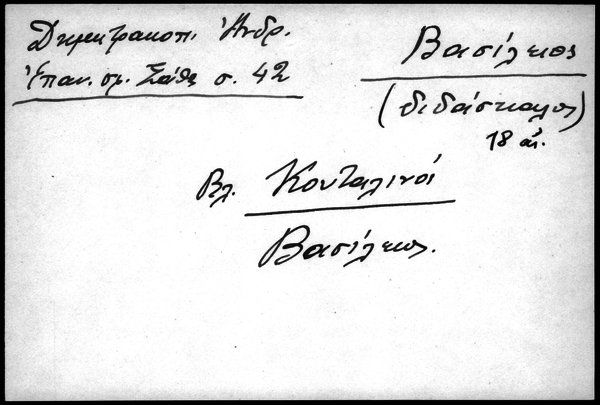 Δημητρακοπ. Ἀνδρ.
Ἐπαν. σφ. Σάθα σ. 42
Βασίλειος
(διδάσκαλος)
18 αἰ.
Βλ. Κονταλινοί
Βασίλειος.